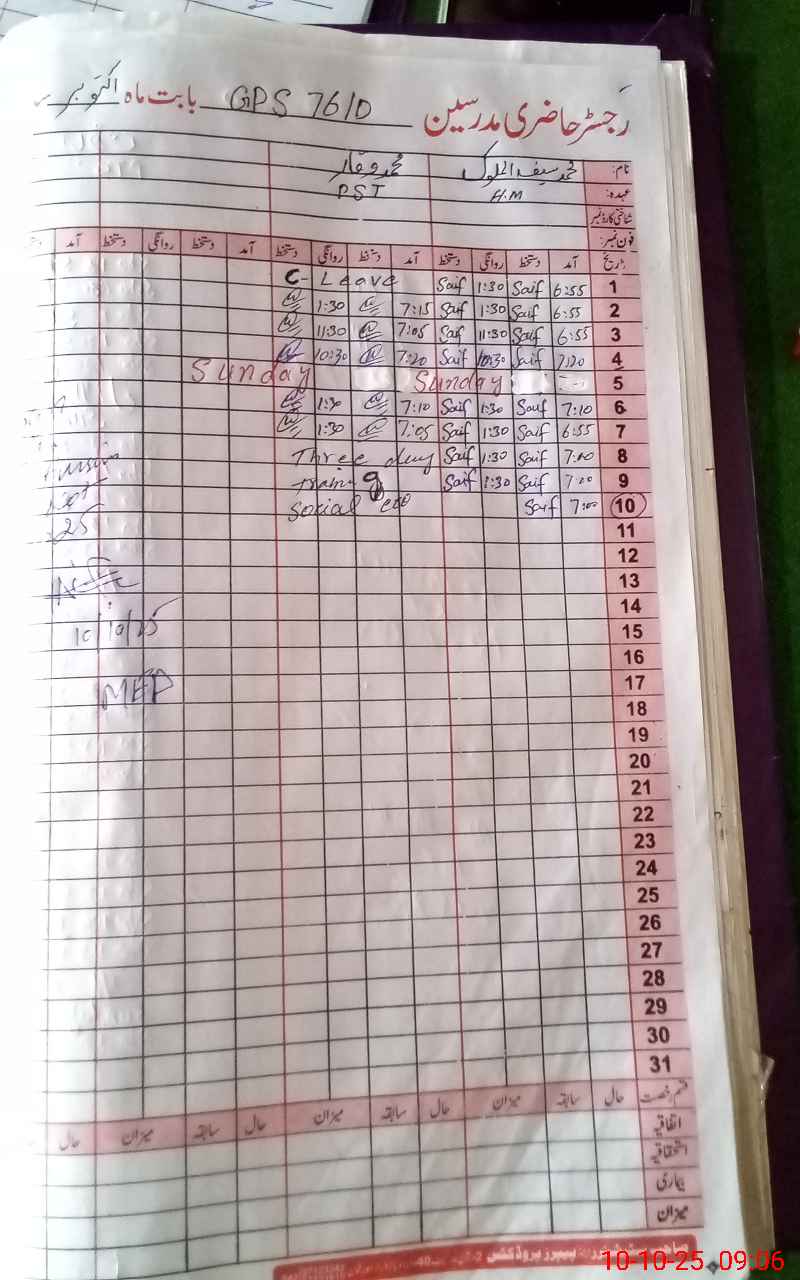 رجسٹر حاضری مدرسین GPS 76/D بابت ماہ اکتوبر
نام: محمد سیف الملوک محمد وقار
عہدہ: H.M PST
شناختی کارڈ نمبر
فون نمبر:
تاریخ آمد دستخط روانگی دستخط آمد دستخط روانگی دستخط آمد دستخط روانگی دستخط آمد
1 6:55 Saif 1:30 Saif C- Leave
2 6:55 Saif 1:30 Saif 7:15 1:30
3 6:55 Saif 11:30 Saif 7:05 11:30
4 7:20 Saif 10:30 Saif 7:20 10:30
5 Sunday Sunday
6 7:10 Saif 1:30 Saif 7:10 1:30
7 6:55 Saif 1:30 Saif 7:05 1:30
8 7:00 Saif 1:30 Saif Three day
9 7:00 Saif 1:30 Saif
10 7:00 Saif
11
12
13
14
15
16
17
18
19
20
21
22
23
24
25
26
27
28
29
30
31
25
10/10/25
MEP
قسم رخصت حال سابقہ میزان حال سابقہ میزان حال سابقہ میزان حال
اتفاقیہ
استحقاقیہ
بیماری
میزان
10-10-25 09:06